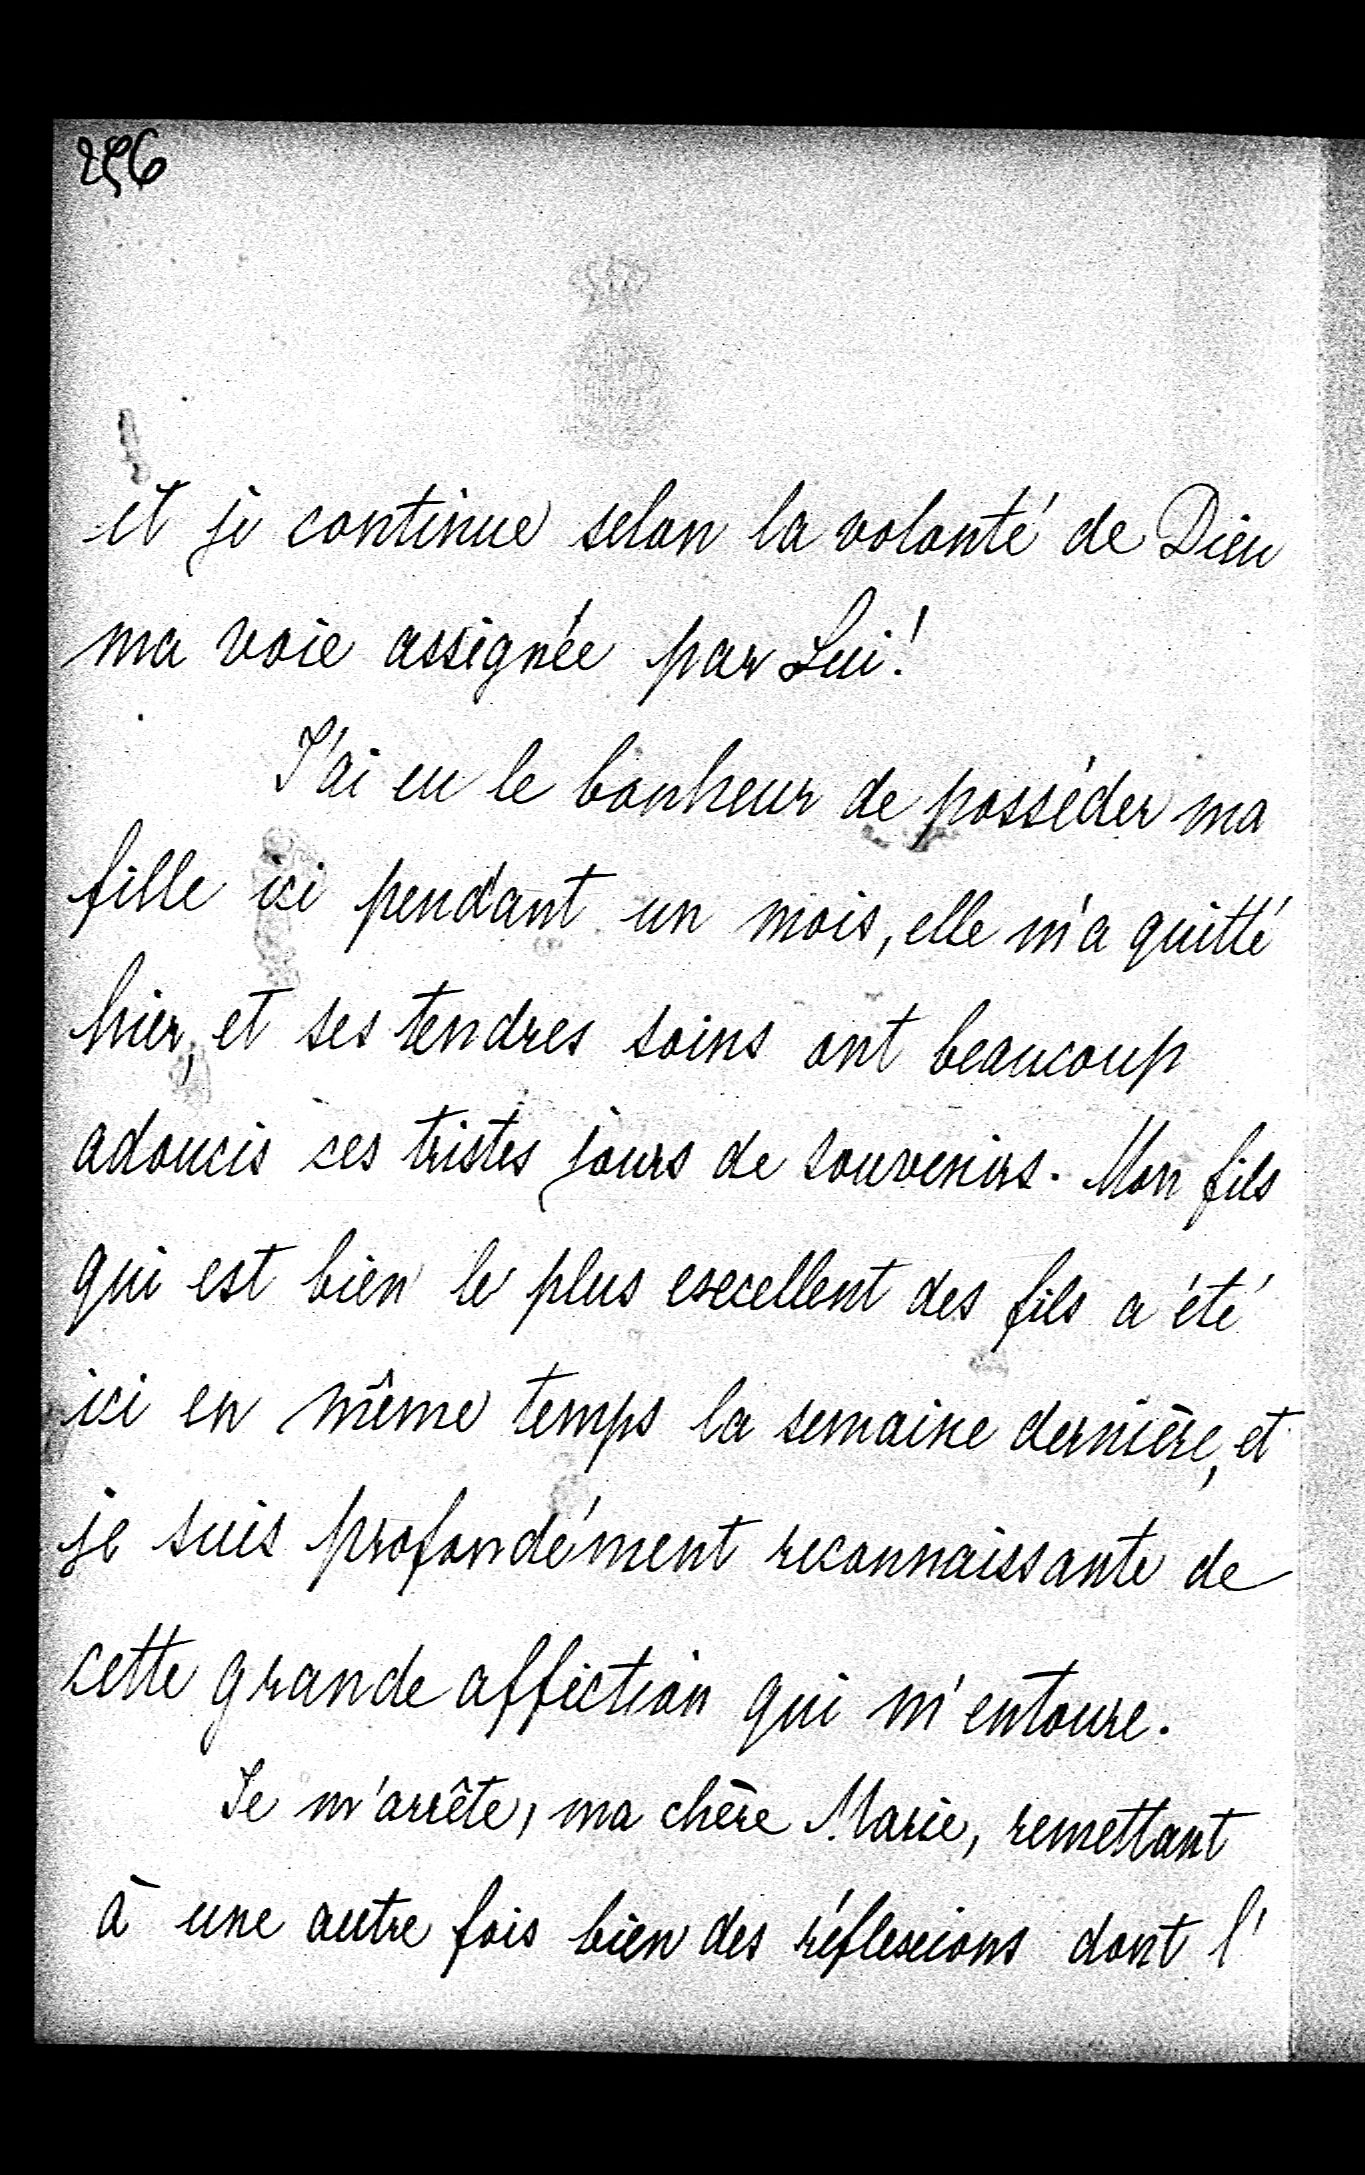 256
et je continue selon la volonté de Dieu
ma voie assignée par Lui!
J'ai eu le bonheur de posséder ma
fille ici pendant un mois, elle m'a quitté
hier, et ses tendres soins ont beaucoup
adoucis ces tristes jours de souvenirs. Mon fils
qui est bien le plus excellent des fils a été
ici en même temps la semaine dernière, et
je suis profondément reconnaissante de
cette grande affection qui m'entoure.
Je m'arrête, ma chère Marie, remettant
à une autre fois bien des réflexions dont l'